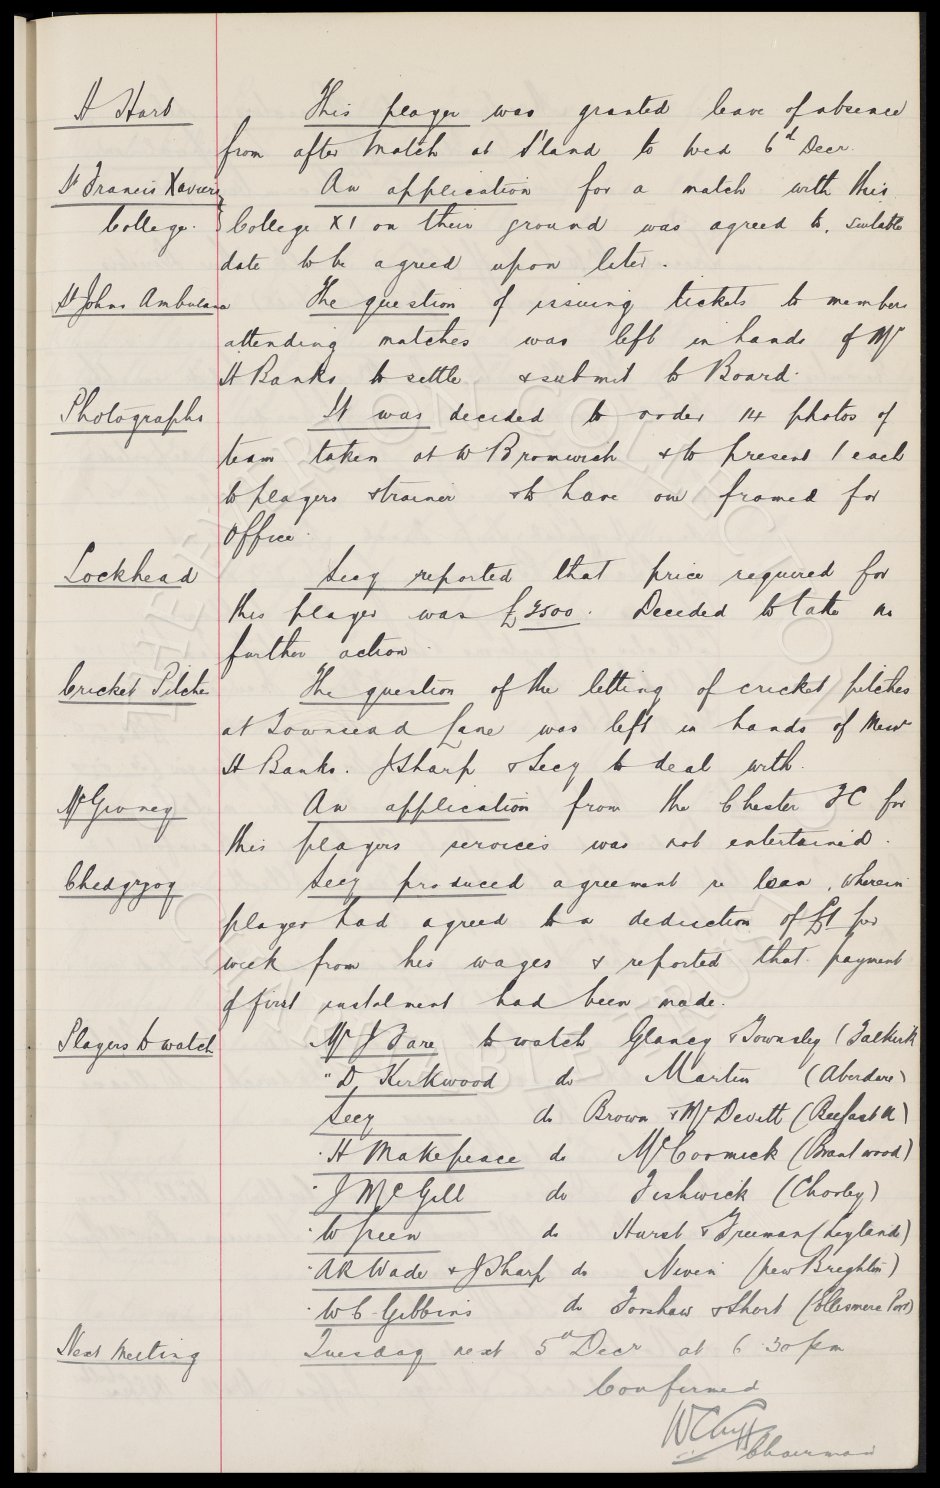 H Hart This player was granted leave of absence
from after match at S'land to Wed 6th Decr.
St Francis Xaviers An application for a match with this
College. College XI on their ground was agreed to, suitable
date to be agreed upon later.
St Johns Ambulance The question of issuing tickets to members
attending matches was left in hands of Mr
H Banks to settle & submit to Board.
Photographs It was decided to order 14 photos of
team taken at W Bromwich & to present 1 each
to players & trainer & to have one framed for
Office.
Lockhead Secy reported that price required for
this player was £3500. Decided to take no
further action.
Cricket Pitches The question of the letting of cricket pitches
at Townsend Lane was left in hands of Messrs
H Banks. J Sharp & Secy to deal with.
McGivney An application from the Chester FC for
this players services was not entertained.
Chedgzoy Secy produced agreement re loan, wherein
player had agreed to a deduction of £1 per
week from his wages & reported that payment
of first instalment had been made.
Players to watch Mr J Fare to watch Glancy & Townsley (Falkirk
" D Kirkwood do Martin (Aberdare)
Secy do Brown & McDevitt (Belfast U)
" H Makepeace do McCormick (Brantwood)
" J McGill do Fishwick (Chorley)
" W Green do Hurst & Freeman (Leyland)
" AR Wade & J Sharp do Niven (New Brighton)
" W C Gibbins do Forshaw & Short (Ellesmere Port)
Next Meeting Tuesday next 5th Decr at 6.30 pm
Confirmed
W C Cuff
Chairman
THE EVERTON COLLECTION